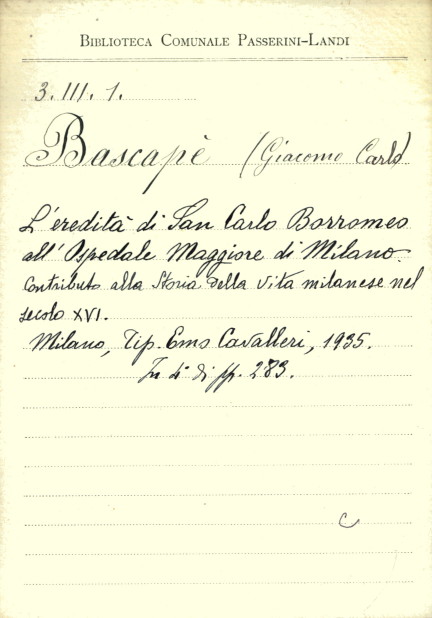 BIBLIOTECA COMUNALE PASSERINI-LANDI
3. III. 1.
Bascapè (Giacomo Carlo)
L'eredità di San Carlo Borromeo
all'Ospedale Maggiore di Milano.
Contributo alla Storia della vita milanese nel
secolo XVI.
Milano, Tip. Emo Cavalleri, 1935.
In 4° di pp. 283.
C